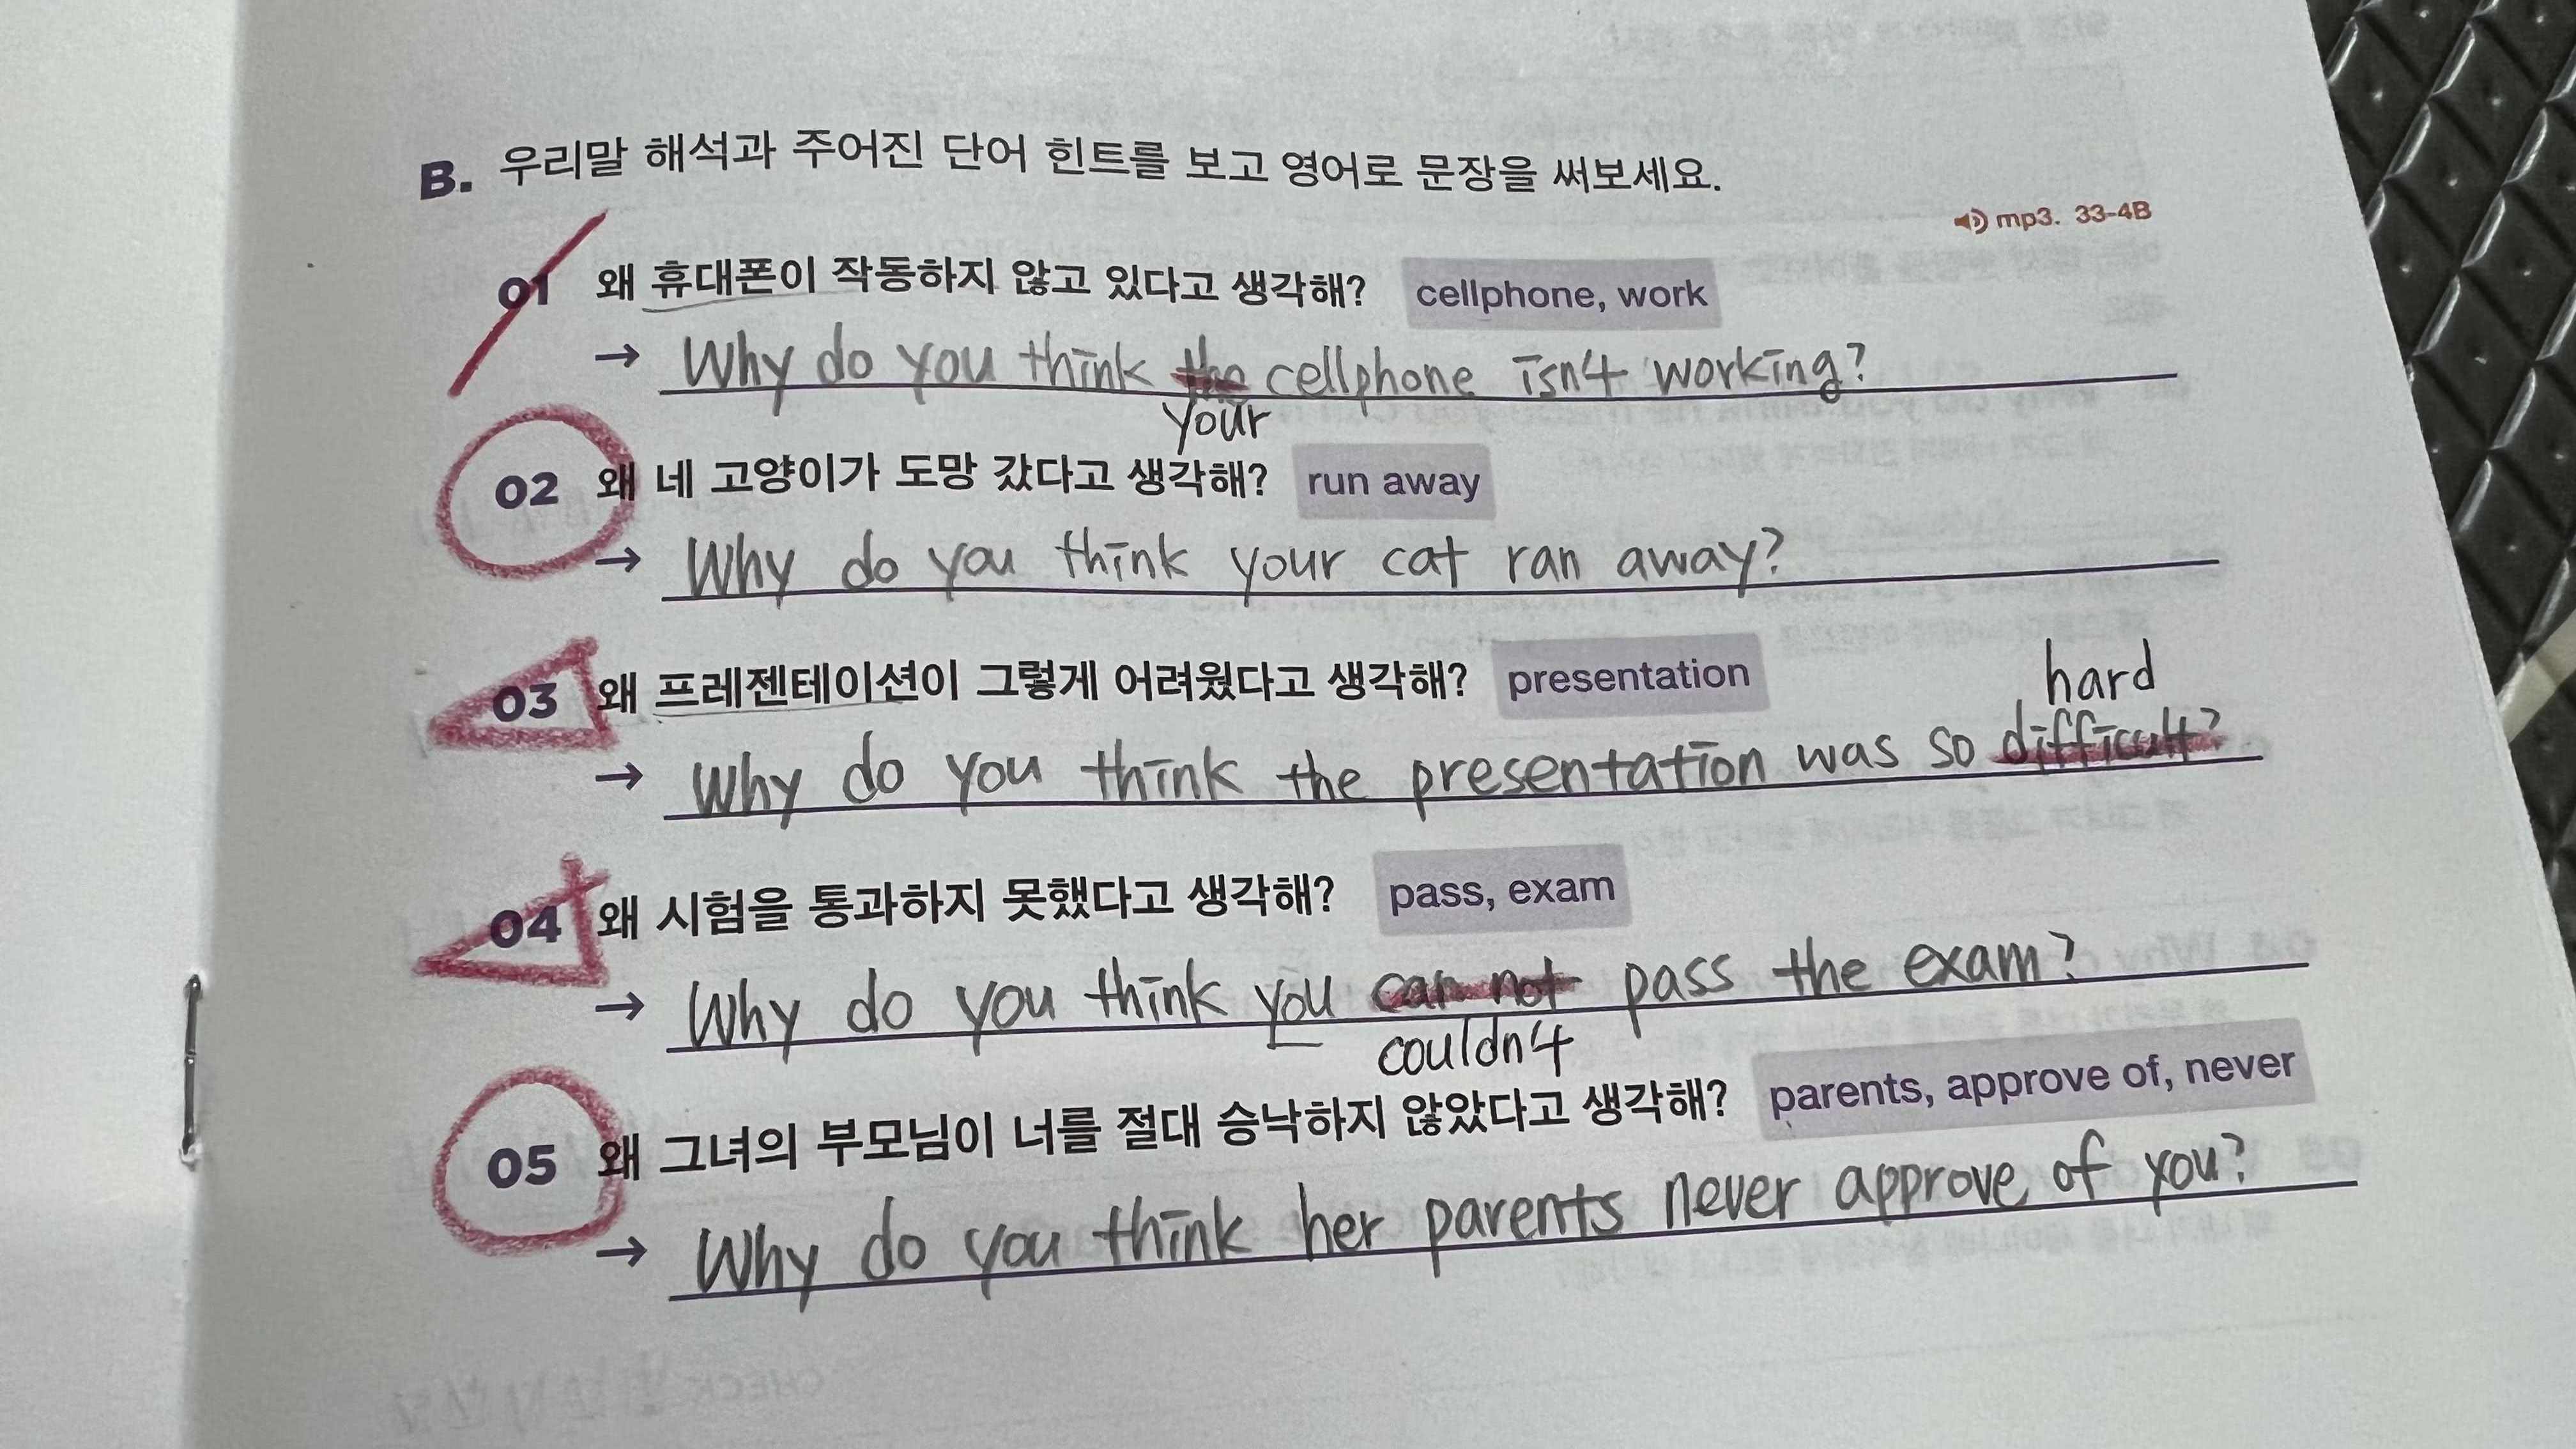 B. 우리말 해석과 주어진 단어 힌트를 보고 영어로 문장을 써보세요.
mp3. 33-4B
01 왜 휴대폰이 작동하지 않고 있다고 생각해? cellphone, work
→ Why do you think the cellphone isn't working?
your
02 왜 네 고양이가 도망 갔다고 생각해? run away
→ Why do you think your cat ran away?
03 왜 프레젠테이션이 그렇게 어려웠다고 생각해? presentation
hard
→ Why do you think the presentation was so difficult?
04 왜 시험을 통과하지 못했다고 생각해? pass, exam
→ Why do you think you can not pass the exam?
couldn't
05 왜 그녀의 부모님이 너를 절대 승낙하지 않았다고 생각해? parents, approve of, never
→ Why do you think her parents never approve of you?